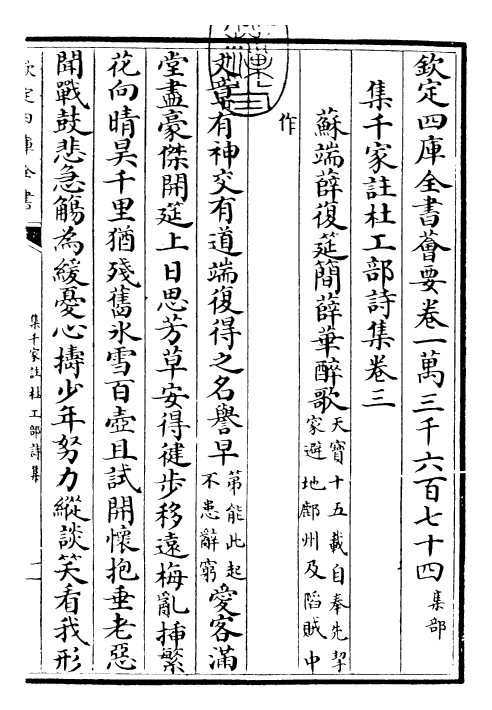 欽定四庫全書薈要卷一萬三千六百七十四 集部
集千家註杜工部詩集卷三
蘇端薛復筵簡薛華醉歌 天寶十五載自奉先挈
家避地鄜州及陷賊中
作
文章有神交有道端復得之名譽早 第能此起
不患辭窮 愛客滿
堂盡豪傑開筵上日思芳草安得健步移遠梅亂插繁
花向晴昊千里猶殘舊氷雪百壺且試開懷抱垂老惡
聞戰鼓悲急觴為緩憂心擣少年努力縱談笑看我形
欽定四庫全書
集千家註杜工部詩集
一